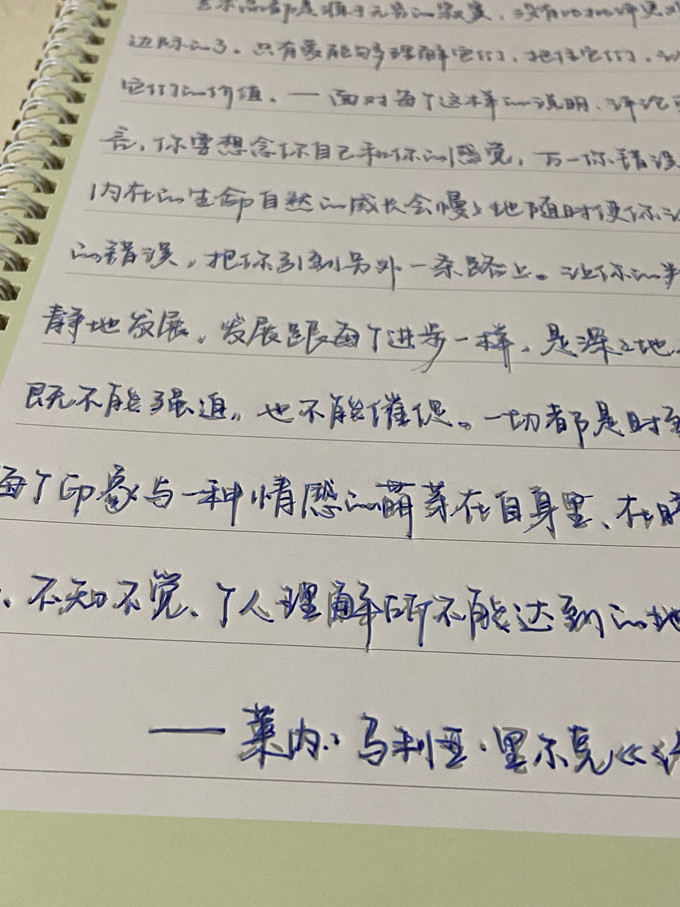 艺术品都是源于无穷的寂寞，没有比批评更
边际的了。只有爱能够理解它们，把住它们，
它们的价值。——面对每个这样的说明、评论
言，你要想念你自己和你的感觉，万一你错误
内在的生命自然的成长会慢慢地随时使你
的错误，把你引到另外一条路上。让你的
静地发展。发展跟每个进步一样，是深深地
既不能强迫，也不能催促。一切都是时
每个印象与一种情感的萌芽在自身里、在
、不知不觉、个人理解所不能达到的地
——莱内·马利亚·里尔克《